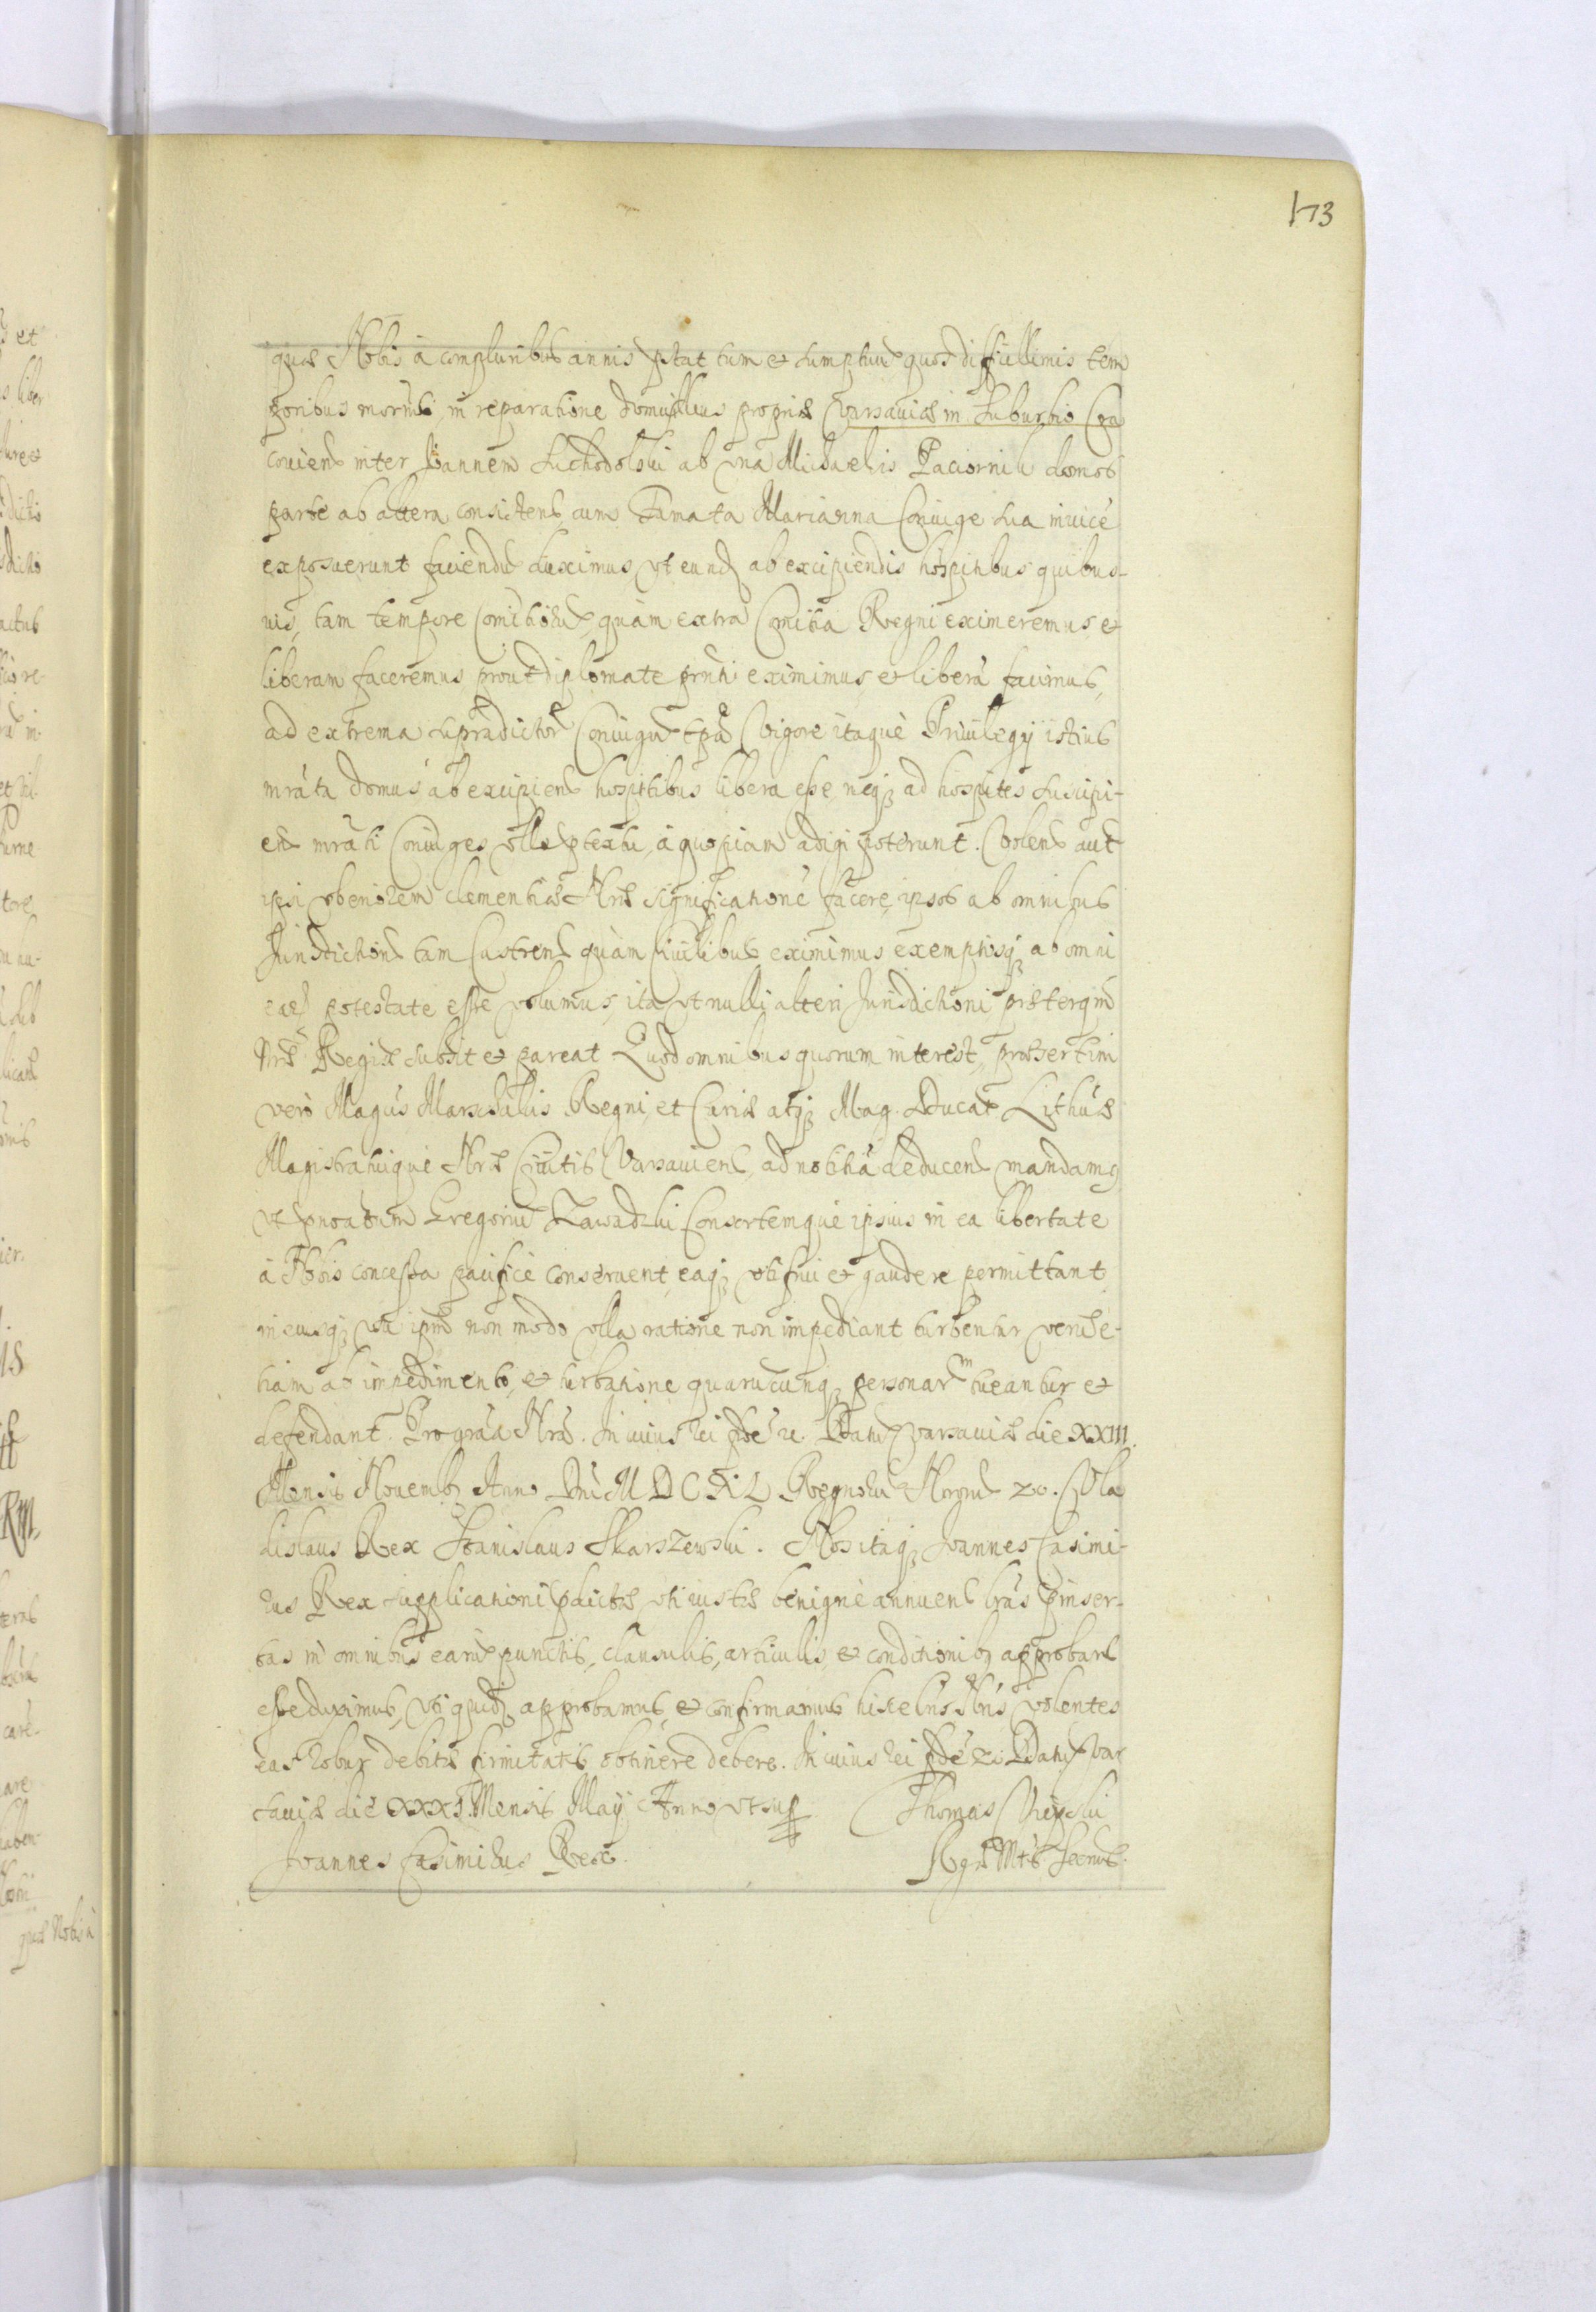 173
quæ Nobis à compluribus annis pstat tum et sumptuu quos difficillimis tem
poribus in reparatione domus illius propriæ Varsaviæ in Suburbio Cra
coviens inter Joannem Suchodolski ab vna Michaelis Paciornik domos
parte ab altera consistens cum Famata Marianna Coniuge sua invicē
exposuerunt faciendū duximus vt eund ab excipiendis hospitibus quibus-
vis, tam tempore Comitiorū, quàm extra Comitia Regni eximeremus et
liberam faceremus prout diplomate prnti eximimus et liberā facimus,
ad extrema supradictor Coniugū tpa Vigore itaque Privilegÿ istius
mrāta domus ab excipiend hospitibus libera esse neq; ad hospites suscipi-
end mrāti Coniuges vllo ptextu, à quopiam adigi poterunt. Volens aut
ipsi vberiorem clementiæ Nræ significationē facere ipsos ab omnibus
Jurisdictionibus tam Castrens quàm Civilibus eximimus exemptosq; ab omni
potestate esse volumus, ita vt nulli alteri Jurisdictioni præterqm
Nræ Regiæ subsit et pareat Quod omnibus quorum interest, præsertim
verò Magcis Marschalis Regni, et Curiæ atq; Mag. Ducat Lithūæ
Magistratuique Nræ Civitis Varsaviens, ad notitiā deducens mandamq
vt pnoatum Gregoriū Zawadzki Consortemque ipsius in ea libertate
à Nobis concessa pacifice conservent, eaq; vti frui et gaudere permittant
in eiusq; vsu ipm non modo vlla ratione non impediant turbentur verū e-
tiam ab impedimento, et turbatione quarucunq; personarm tueantur et
defendant. Pro gratia Nrā. In cuius rei fidē rc. Datū Varsaviæ die XXIII.
Mensis Novemb Anno Dni MDCXL Regnorū Nrorū 20. Vla
dislaus Rex Stanislaus Skarszewski. Nos itaq; Joannes Casimi-
rus Rex supplicationi pdictæ, vti iustæ benignè annuens lrās pinser-
tas in omnibus earū punctis, clausulis, articulis, et conditionib approband
esse duximus, vti quidē approbamus, et confirmamus hisce Nris volentes
eas robur debitæ firmitatis obtinere debere. In cuius rei fidē rc. Datū Var
saviæ die XXXI. Mensis Maÿ Anno vt sup Thomas Vieyski
Joannes Casimirus Rex. Rgiæ Mtis Secrius.